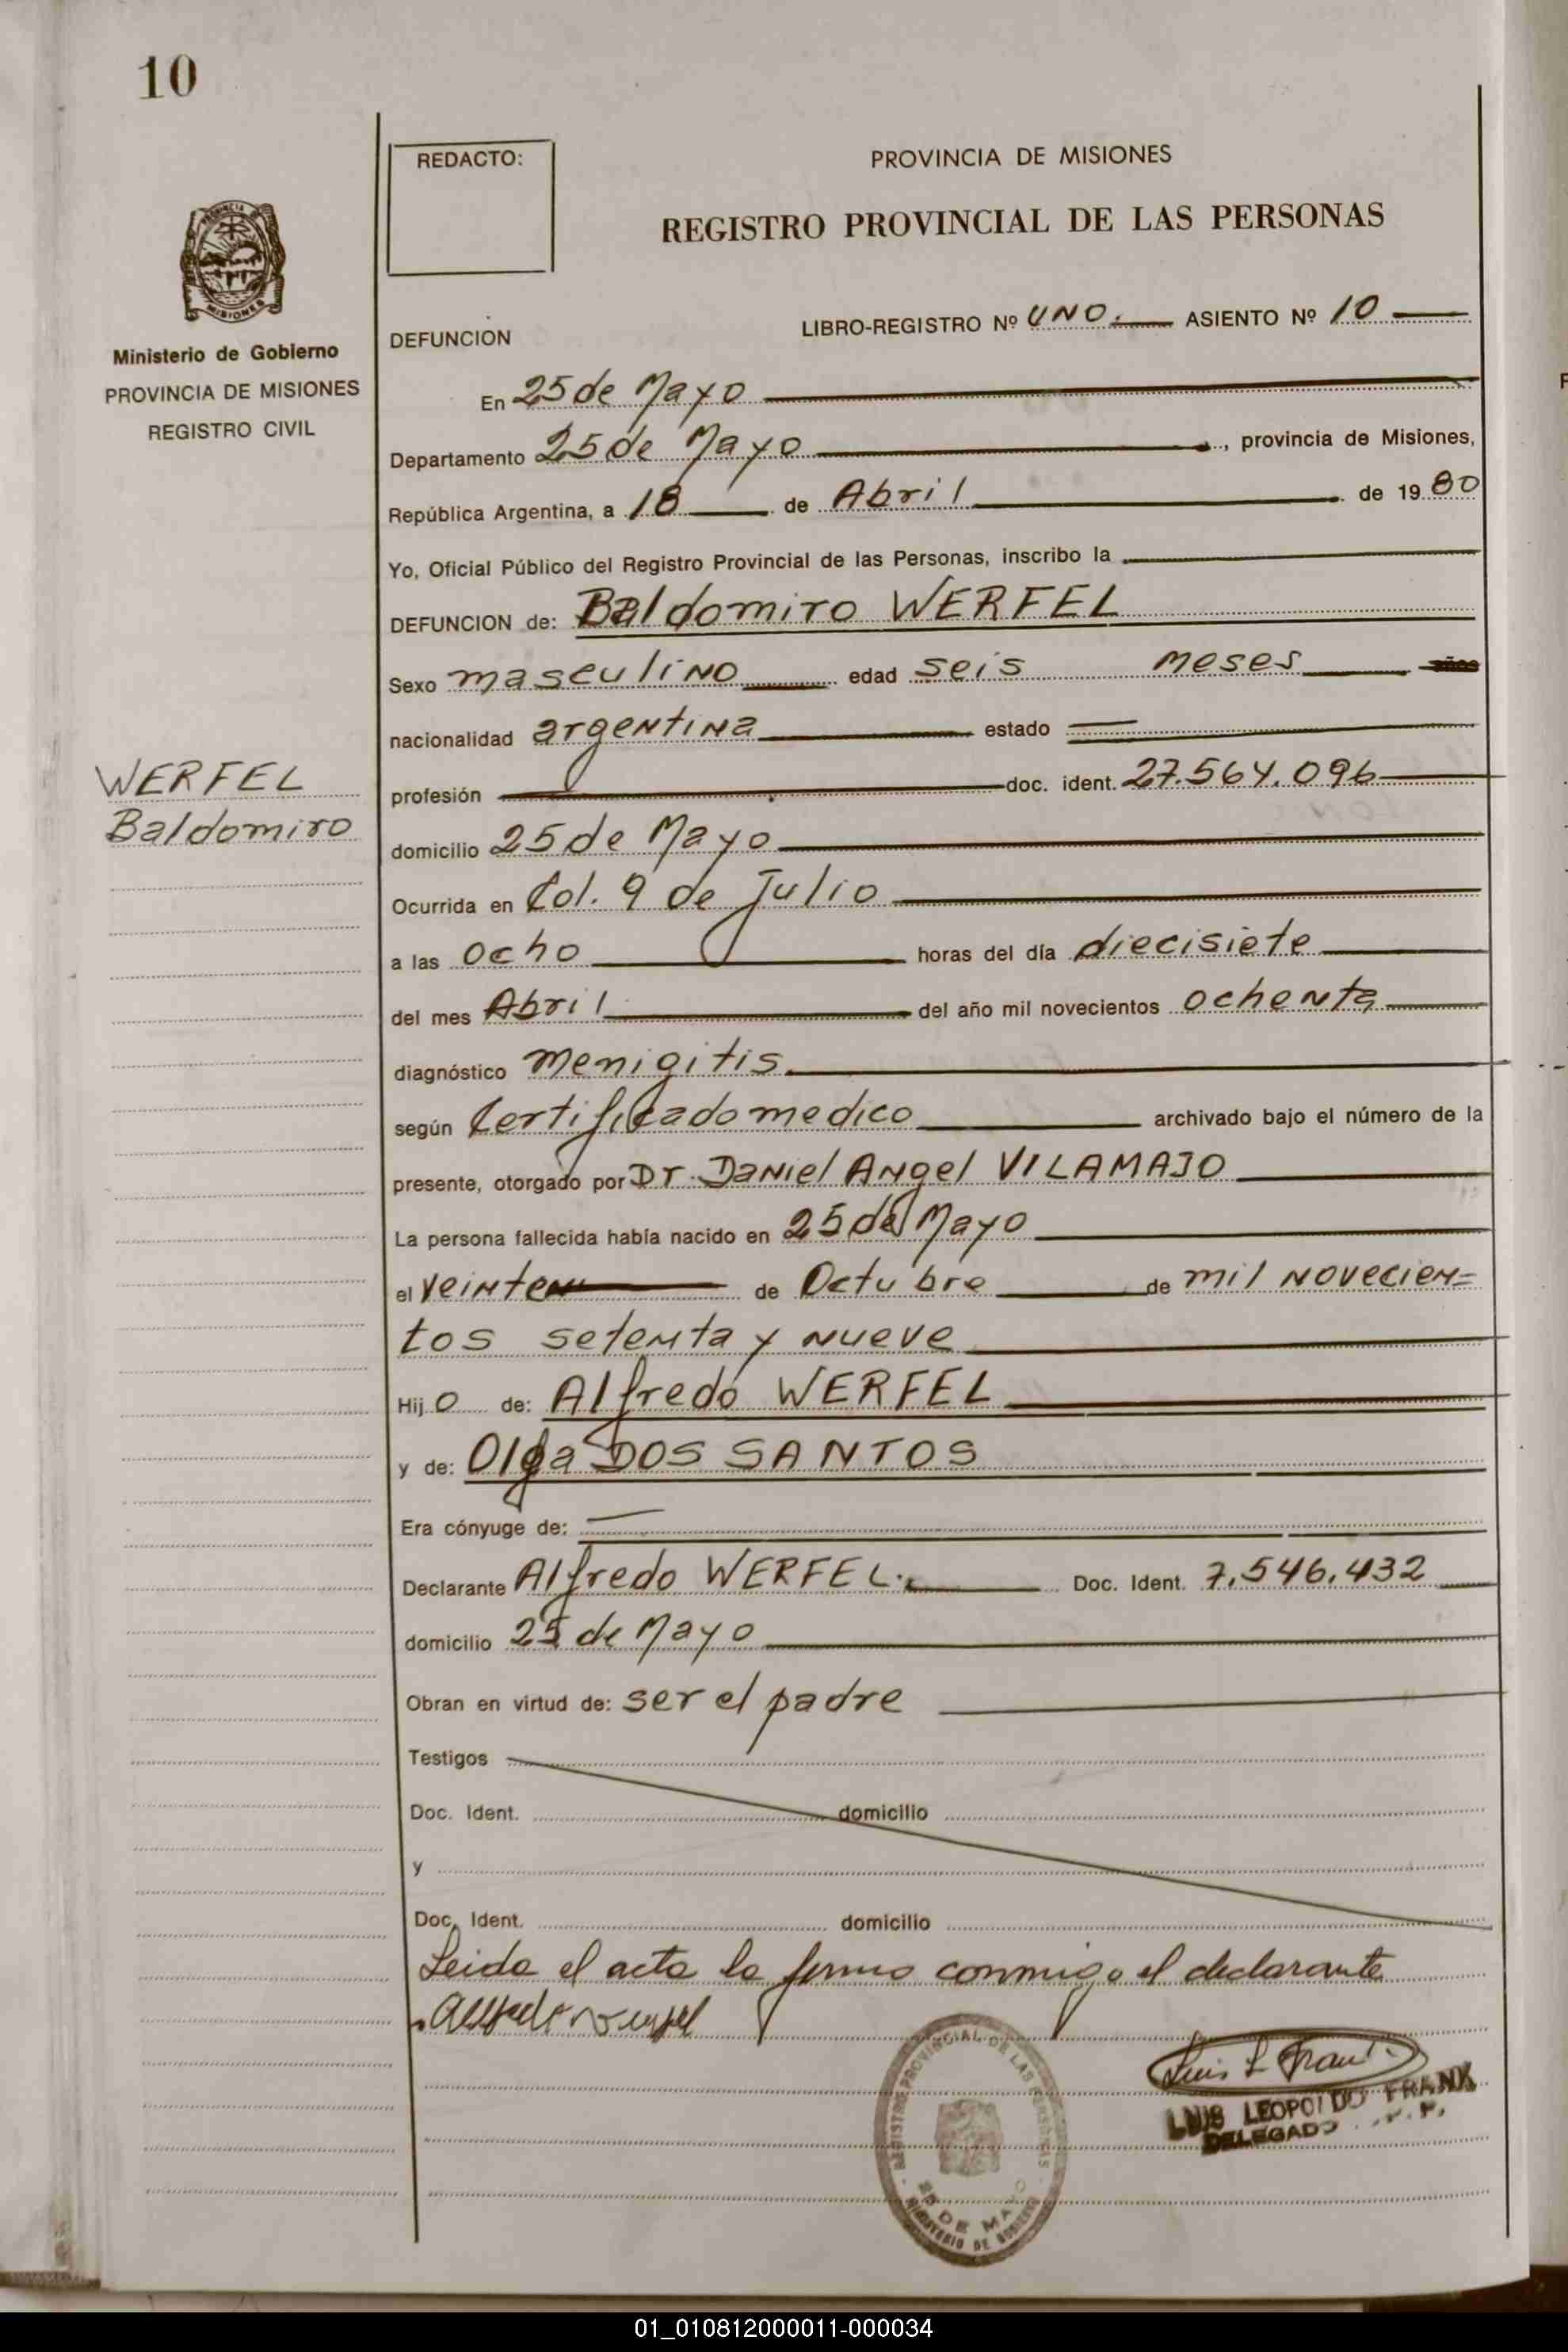 10
REDACTO:
PROVINCIA DE MISIONES
REGISTRO PROVINCIAL DE LAS PERSONAS
MISIONES
Ministerio de Gobierno
PROVINCIA DE MISIONES
REGISTRO CIVIL
DEFUNCION LIBRO-REGISTRO Nº UNO. ASIENTO Nº 10
En 25 de Mayo
Departamento 25 de Mayo, provincia de Misiones,
República Argentina, a 18 de Abril de 1980
Yo, Oficial Público del Registro Provincial de las Personas, inscribo la
DEFUNCION de: Baldomiro WERFEL
Sexo masculino edad seis meses años
nacionalidad argentina estado
WERFEL
Baldomiro
profesión doc. ident. 27.564.096
domicilio 25 de Mayo
Ocurrida en Col. 9 de Julio
a las ocho horas del día diecisiete
del mes Abril del año mil novecientos ochenta
diagnóstico Menigitis
según Certificado medico archivado bajo el número de la
presente, otorgado por Dr. Daniel Angel VILAMAJO
La persona fallecida había nacido en 25 de Mayo
el veinte de Octubre de mil novecien=
tos setenta y nueve
Hijo de: Alfredo WERFEL
y de: Olga DOS SANTOS
Era cónyuge de:
Declarante Alfredo WERFEL. Doc. Ident. 7.546.432
domicilio 25 de Mayo
Obran en virtud de: ser el padre
Testigos
Doc. Ident. domicilio
y
Doc. Ident. domicilio
Leida el acta la firma conmigo el declarante
Alfredo Werfel
REGISTRO PROVINCIAL DE LAS PERSONAS
25 DE MAYO
MINISTERIO DE GOBIERNO
Luis L Frank
LUIS LEOPOLDO FRANK
DELEGADO
01_010812000011-000034